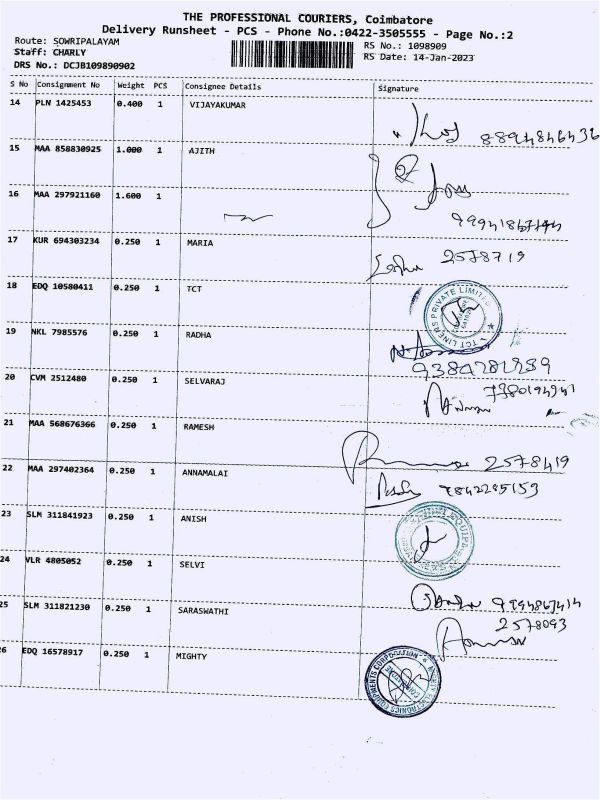 THE PROFESSIONAL COURIERS, Coimbatore
Delivery Runsheet - PCS - Phone No.:0422-3505555 - Page No.:2
Route: SOWRIPALAYAM
RS No.: 1098909
Staff: CHARLY
RS Date: 14-Jan-2023
DRS No.: DCJB109890902
S No Consignment No Weight PCS Consignee Details Signature
14 PLN 1425453 0.400 1 VIJAYAKUMAR
8894846436
15 MAA 858830925 1.000 1 AJITH
16 MAA 297921160 1.600 1
17 KUR 694303234 0.250 1 MARIA
2578719
18 EDQ 10580411 0.250 1 TCT
TCT LINERS PRIVATE LIMITED
19 NKL 7985576 0.250 1 RADHA
20 CVM 2512480 0.250 1 SELVARAJ
21 MAA 568676366 0.250 1 RAMESH
2578419
22 MAA 297402364 0.250 1 ANNAMALAI
9842295153
23 SLM 311841923 0.250 1 ANISH
24 VLR 4805052 0.250 1 SELVI
9994867414
25 SLM 311821230 0.250 1 SARASWATHI
2578093
26 EDQ 16578917 0.250 1 MIGHTY
MIGHTY ELECTRONICS EQUIPMENTS CORPORATION